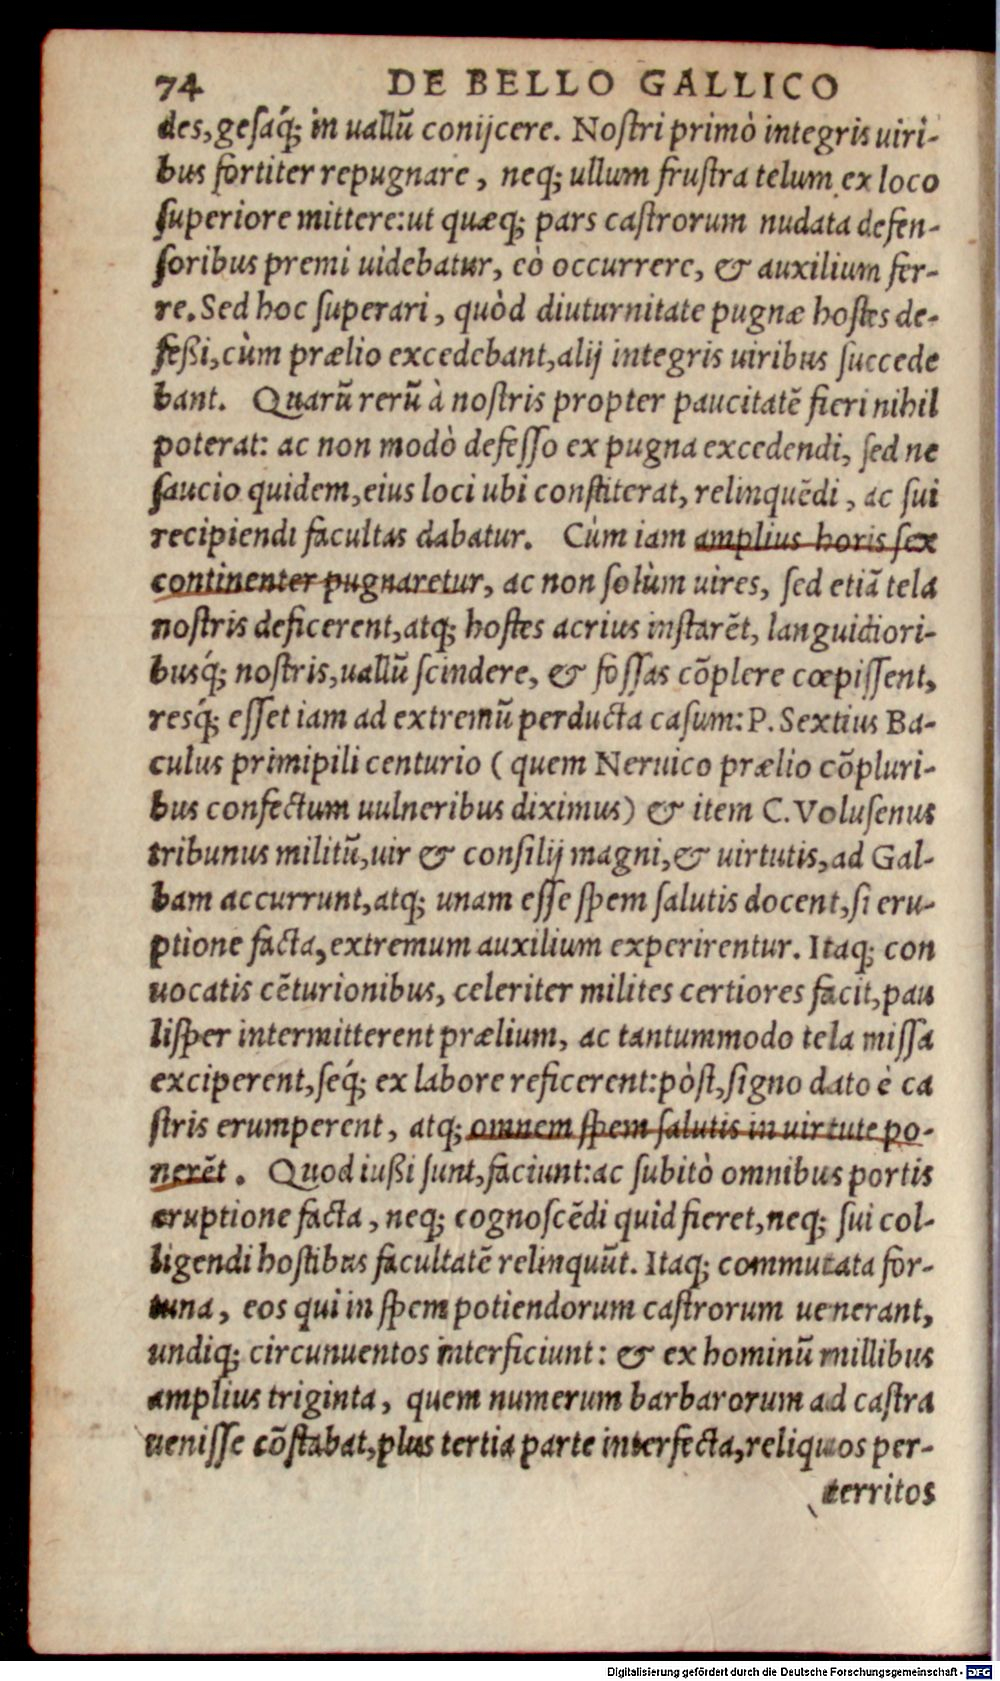 74 DE BELLO GALLICO
des, gesaq́; in uallũ conijcere. Nostri primò integris uiri-
bus fortiter repugnare, neq; ullum frustra telum ex loco
superiore mittere: ut quæq; pars castrorum nudata defen-
soribus premi uidebatur, eò occurrere, & auxilium fer-
re. Sed hoc superari, quòd diuturnitate pugnæ hostes de-
feßi, cùm prælio excedebant, alij integris uiribus succede
bant. Quarũ rerũ à nostris propter paucitatẽ fieri nihil
poterat: ac non modò defesso ex pugna excedendi, sed ne
saucio quidem, eius loci ubi constiterat, relinquẽdi, ac sui
recipiendi facultas dabatur. Cùm iam amplius horis sex
continenter pugnaretur, ac non solùm uires, sed etiã tela
nostris deficerent, atq; hostes acrius instarẽt, languidiori-
busq́; nostris, uallũ scindere, & fossas cõplere cœpissent,
resq́; esset iam ad extremũ perducta casum: P. Sextius Ba-
culus primipili centurio (quem Neruico prælio cõpluri-
bus confectum uulneribus diximus) & item C. Volusenus
tribunus militũ, uir & consilij magni, & uirtutis, ad Gal-
bam accurrunt, atq; unam esse spem salutis docent, si eru-
ptione facta, extremum auxilium experirentur. Itaq; con
uocatis cẽturionibus, celeriter milites certiores facit, pau
lisper intermitterent prælium, ac tantummodo tela missa
exciperent, seq́; ex labore reficerent: pòst, signo dato è ca
stris erumperent, atq; omnem spem salutis in uirtute po-
nerẽt. Quod iußi sunt, faciunt: ac subitò omnibus portis
eruptione facta, neq; cognoscẽdi quid fieret, neq; sui col-
ligendi hostibus facultatẽ relinquũt. Itaq; commutata for-
tuna, eos qui in spem potiendorum castrorum uenerant,
undiq; circunuentos interficiunt: & ex hominũ millibus
amplius triginta, quem numerum barbarorum ad castra
uenisse cõstabat, plus tertia parte interfecta, reliquos per-
territos
Digitalisierung gefördert durch die Deutsche Forschungsgemeinschaft - DFG